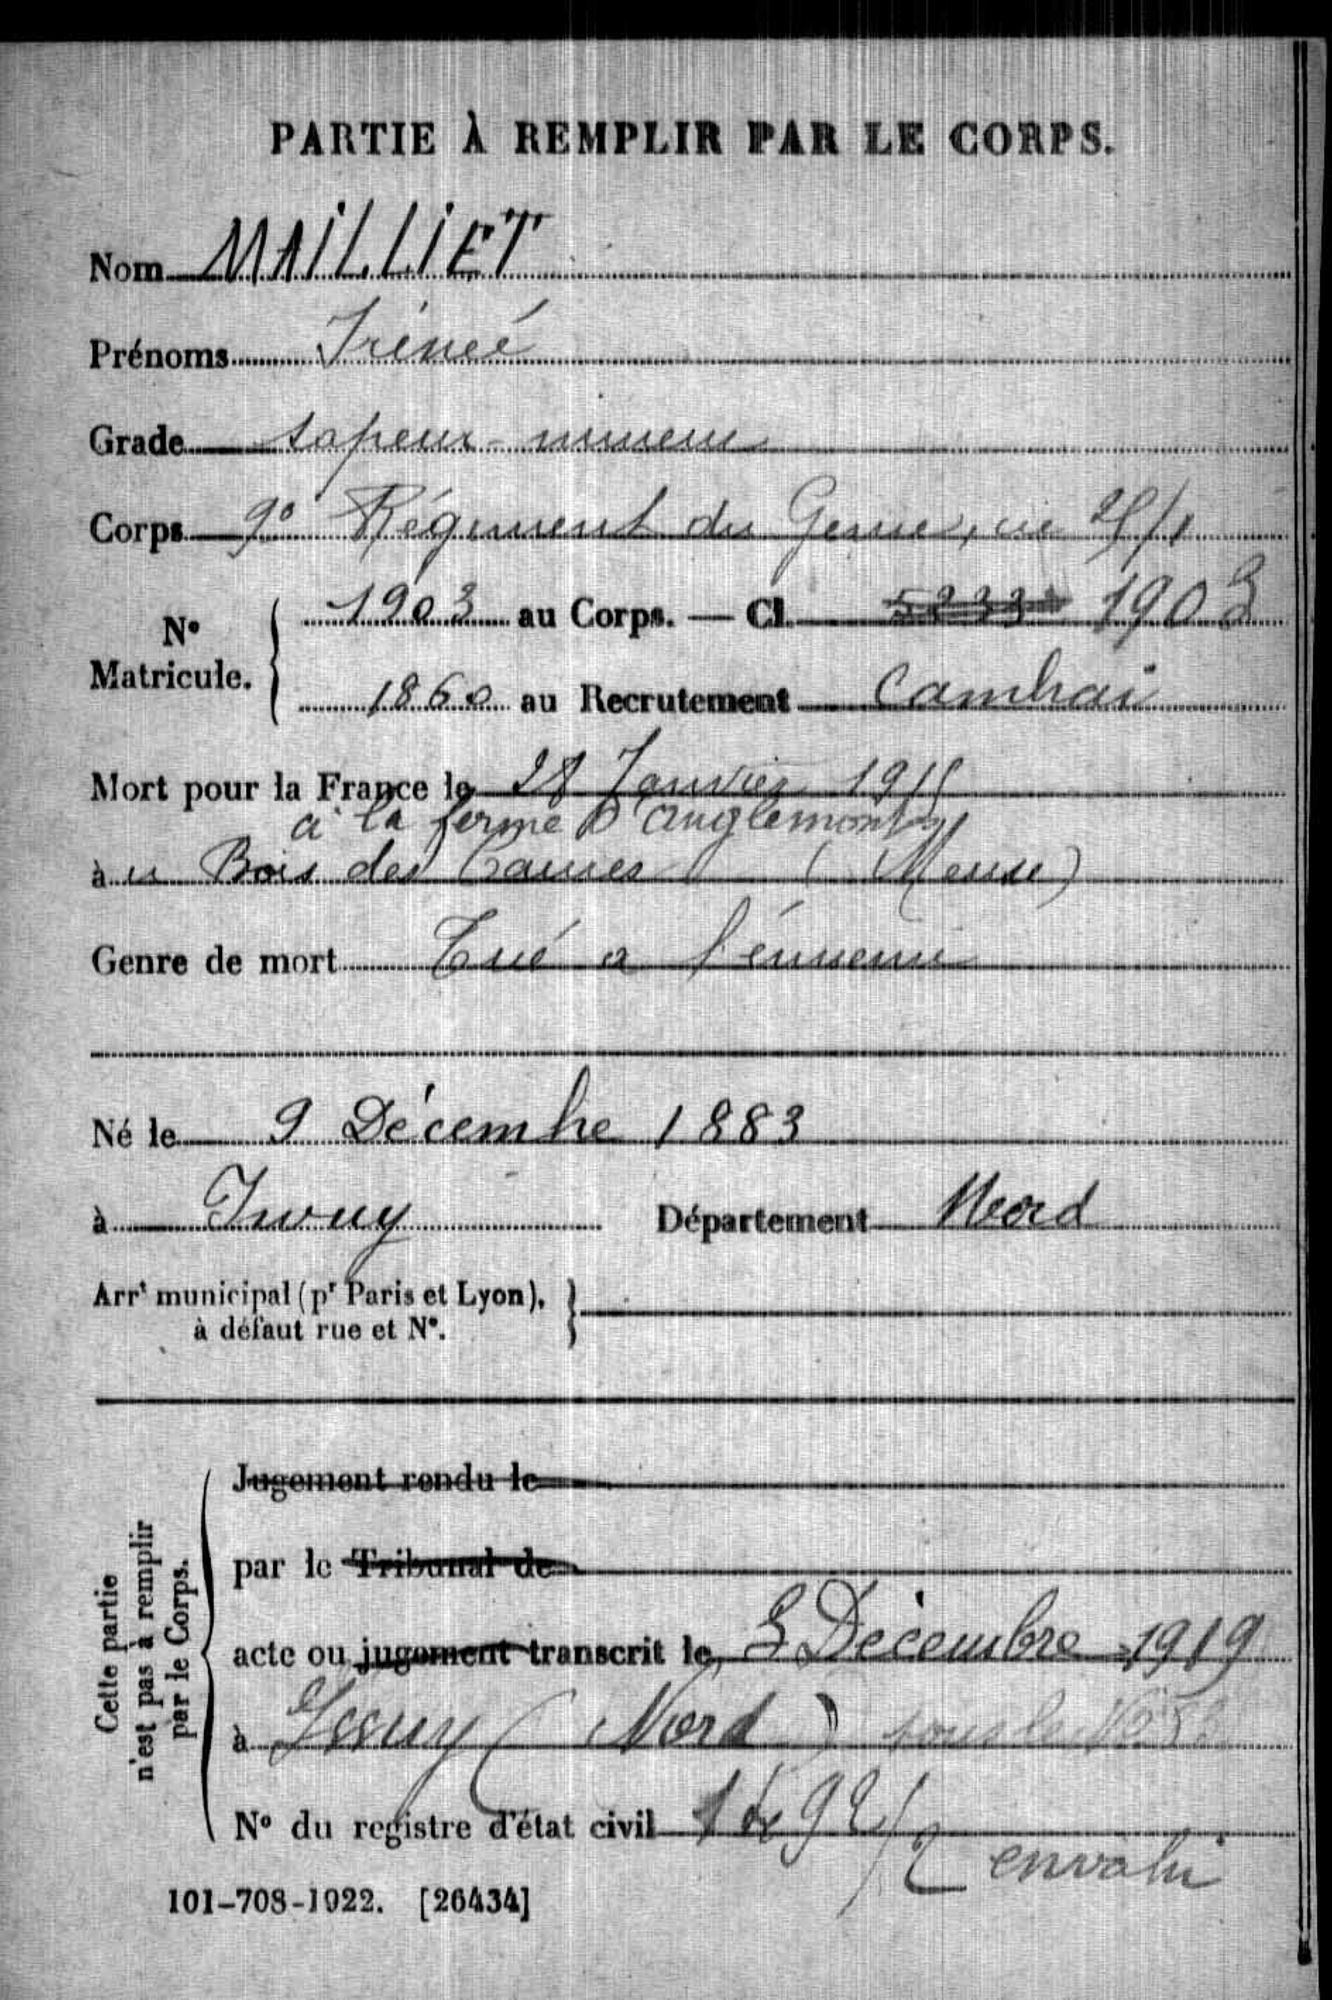 PARTIE À REMPLIR PAR LE CORPS.
Nom MAILLIET
Prénoms Irénée
Grade sapeur-mineur
Corps 9e Régiment du Génie, cie
N° Matricule. 1903 au Corps. — Cl. 5233 1903
1860 au Recrutement Cambrai
Mort pour la France le 28 Janvier 1915
à la ferme D'anglemont
à u Bois des Caures (Meuse)
Genre de mort Tué a l'énnemi
Né le 9 Décembre 1883
à Iwuy Département Nord
Arrt municipal (pr Paris et Lyon), à défaut rue et N°.
Cette partie n'est pas à remplir par le Corps.
Jugement rendu le
par le Tribunal de
acte ou jugement transcrit le 3 Décembre 1919
à Issuy (Nord) sous le No
N° du registre d'état civil
envahi
101-708-1922. [26434]